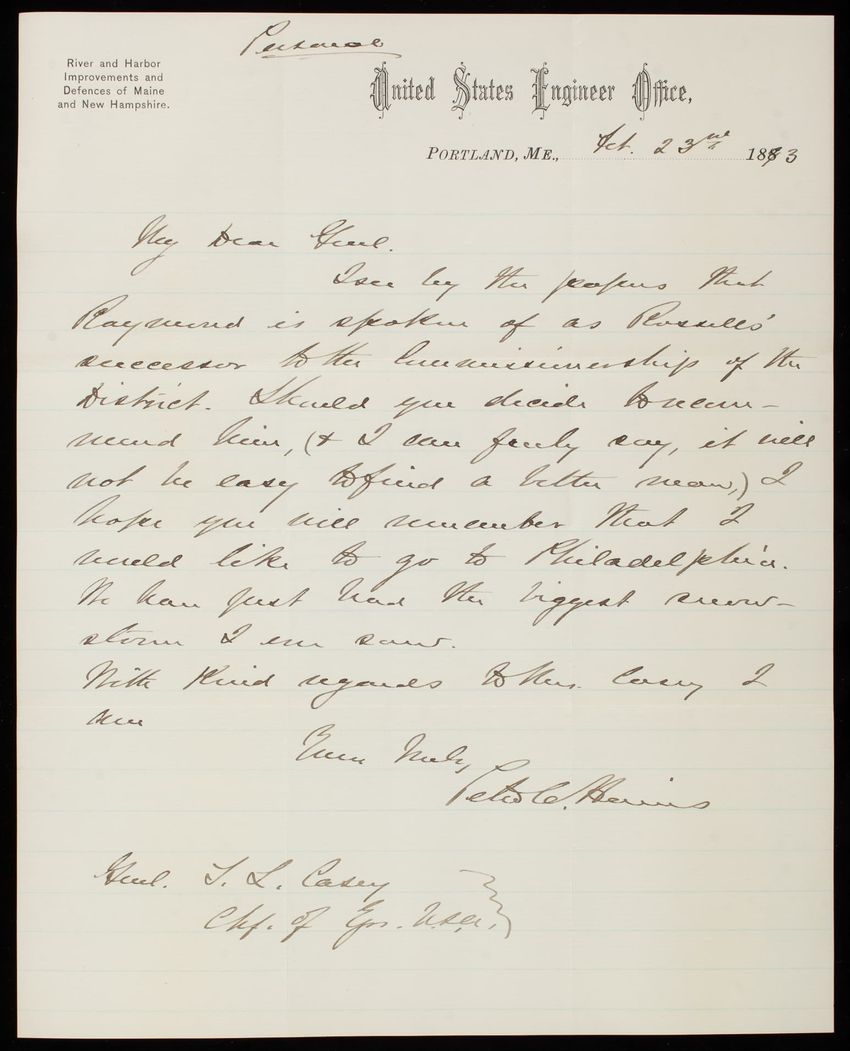 Personal
River and Harbor
Improvements and
Defences of Maine
and New Hampshire.
United States Engineer Office,
PORTLAND, ME., Feb. 23rd 1893
My Dear Genl.
I see by the papers that
Raymond is spoken of as Rossell's
successor to the Commissionership of the
District. Should you decide to recom-
mend him, (& I can freely say, it will
not be easy to find a better man,) I
hope you will remember that I
would like to go to Philadelphia.
We have just had the biggest snow-
storm I ever saw.
With kind regards to Mrs. Casey I
am
Yours Truly,
Peter C. Hains
Genl. T. L. Casey
Chf. of Egrs. U.S.A.